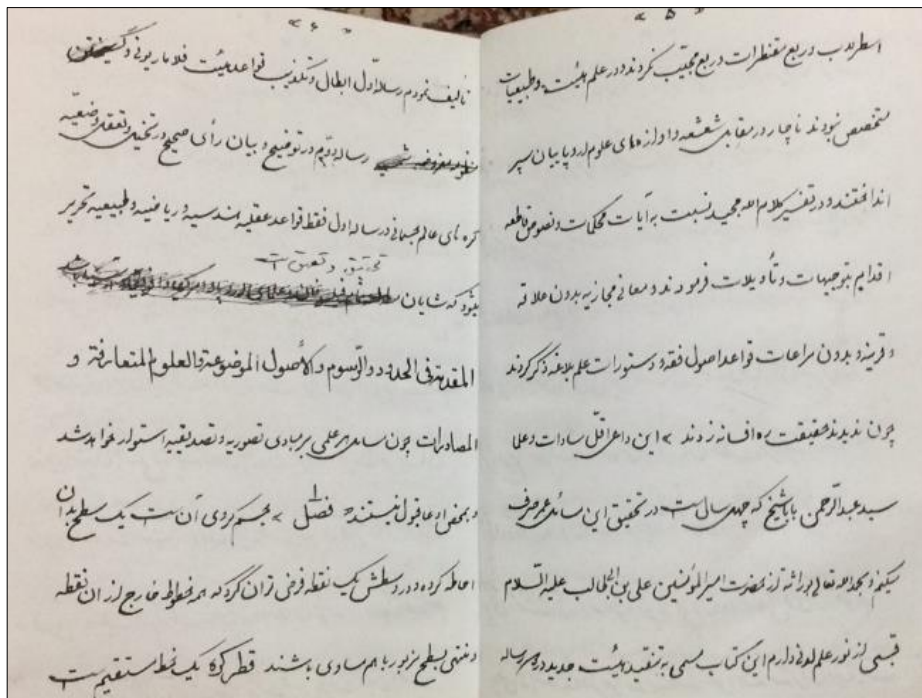 « ۵ »
اسطرلاب و ربع مقنطرات و ربع مجیب کردند و در علم هیئت و طبیعیات
متخصص نبودند ناچار در مقابل شعشعه و اوازه های علوم اروپاییان سپر
انداختند و در تفسیر کلام الله مجید نسبت به آیات محکمات و نصوص قاطعه
اقدام بتوجیهات و تأویلات فرمودند و معانی مجازیه بدون علاقه
و قرینه و بدون مراعات قواعد اصول فقه و دستورات علم بلاغه ذکر کردند
چون ندیدند حقیقت ره افسانه زدند > این داعی اقل سادات و علما
سید عبدالرحمن باباشیخ که چهل سال است در تحقیق این مسائل عمر صرف
میکنم و بحمدالله تعالی بوراثه از حضرت امیرالمؤمنین علی بن ابی طالب علیه السلام
قبسی از نور علم لدنی دارم این کتاب مسمی به تنقید هیئت جدید در دو رساله
« ۶ »
تألیف نمودم رساله اول ابطال و تکذیب قواعد هیئت فلاماریونی و
رساله دوم در توضیح و بیان رأی صحیح در تخیل و تعقل وضعیه
کره های عالم جسمانی در رساله اول فقط قواعد عقلیه هندسیه و ریاضیه و طبیعیه تحریر
تحقیق و تعمق است
میشود که شایان
المقدمة فی الحدود والرسوم والأصول الموضوعة والعلوم المتعارفة و
المصادرات چون مسائل هر علمی بر مبادی تصوریه و تصدیقیه استوار خواهد شد
و بمحض ادعا قبول نیستند فصل ۱ > جسم کروی آن ست یک سطح بدان
احاطه کرده و در وسطش یک نقطه فرض توان کرد که همه خطوط خارج از ان نقطه
و منتهی بسطح مزبور با هم مساوی باشند قطر کره یک خط مستقیم ست